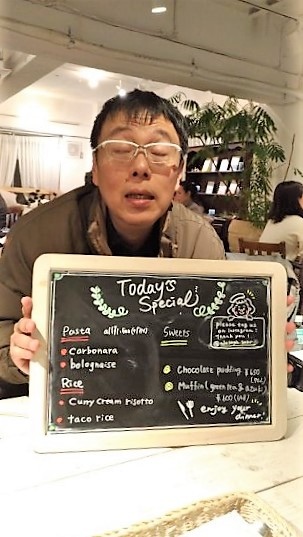 Today's
Special
Pasta
Sweets
please tag us
on Instagram!
Thank you!
Carbonara
bolognaise
Rice
Curry Cream risotto
taco rice
Chocolate pudding ¥650
Muffin (green tea &
¥600
enjoy your
dinner!